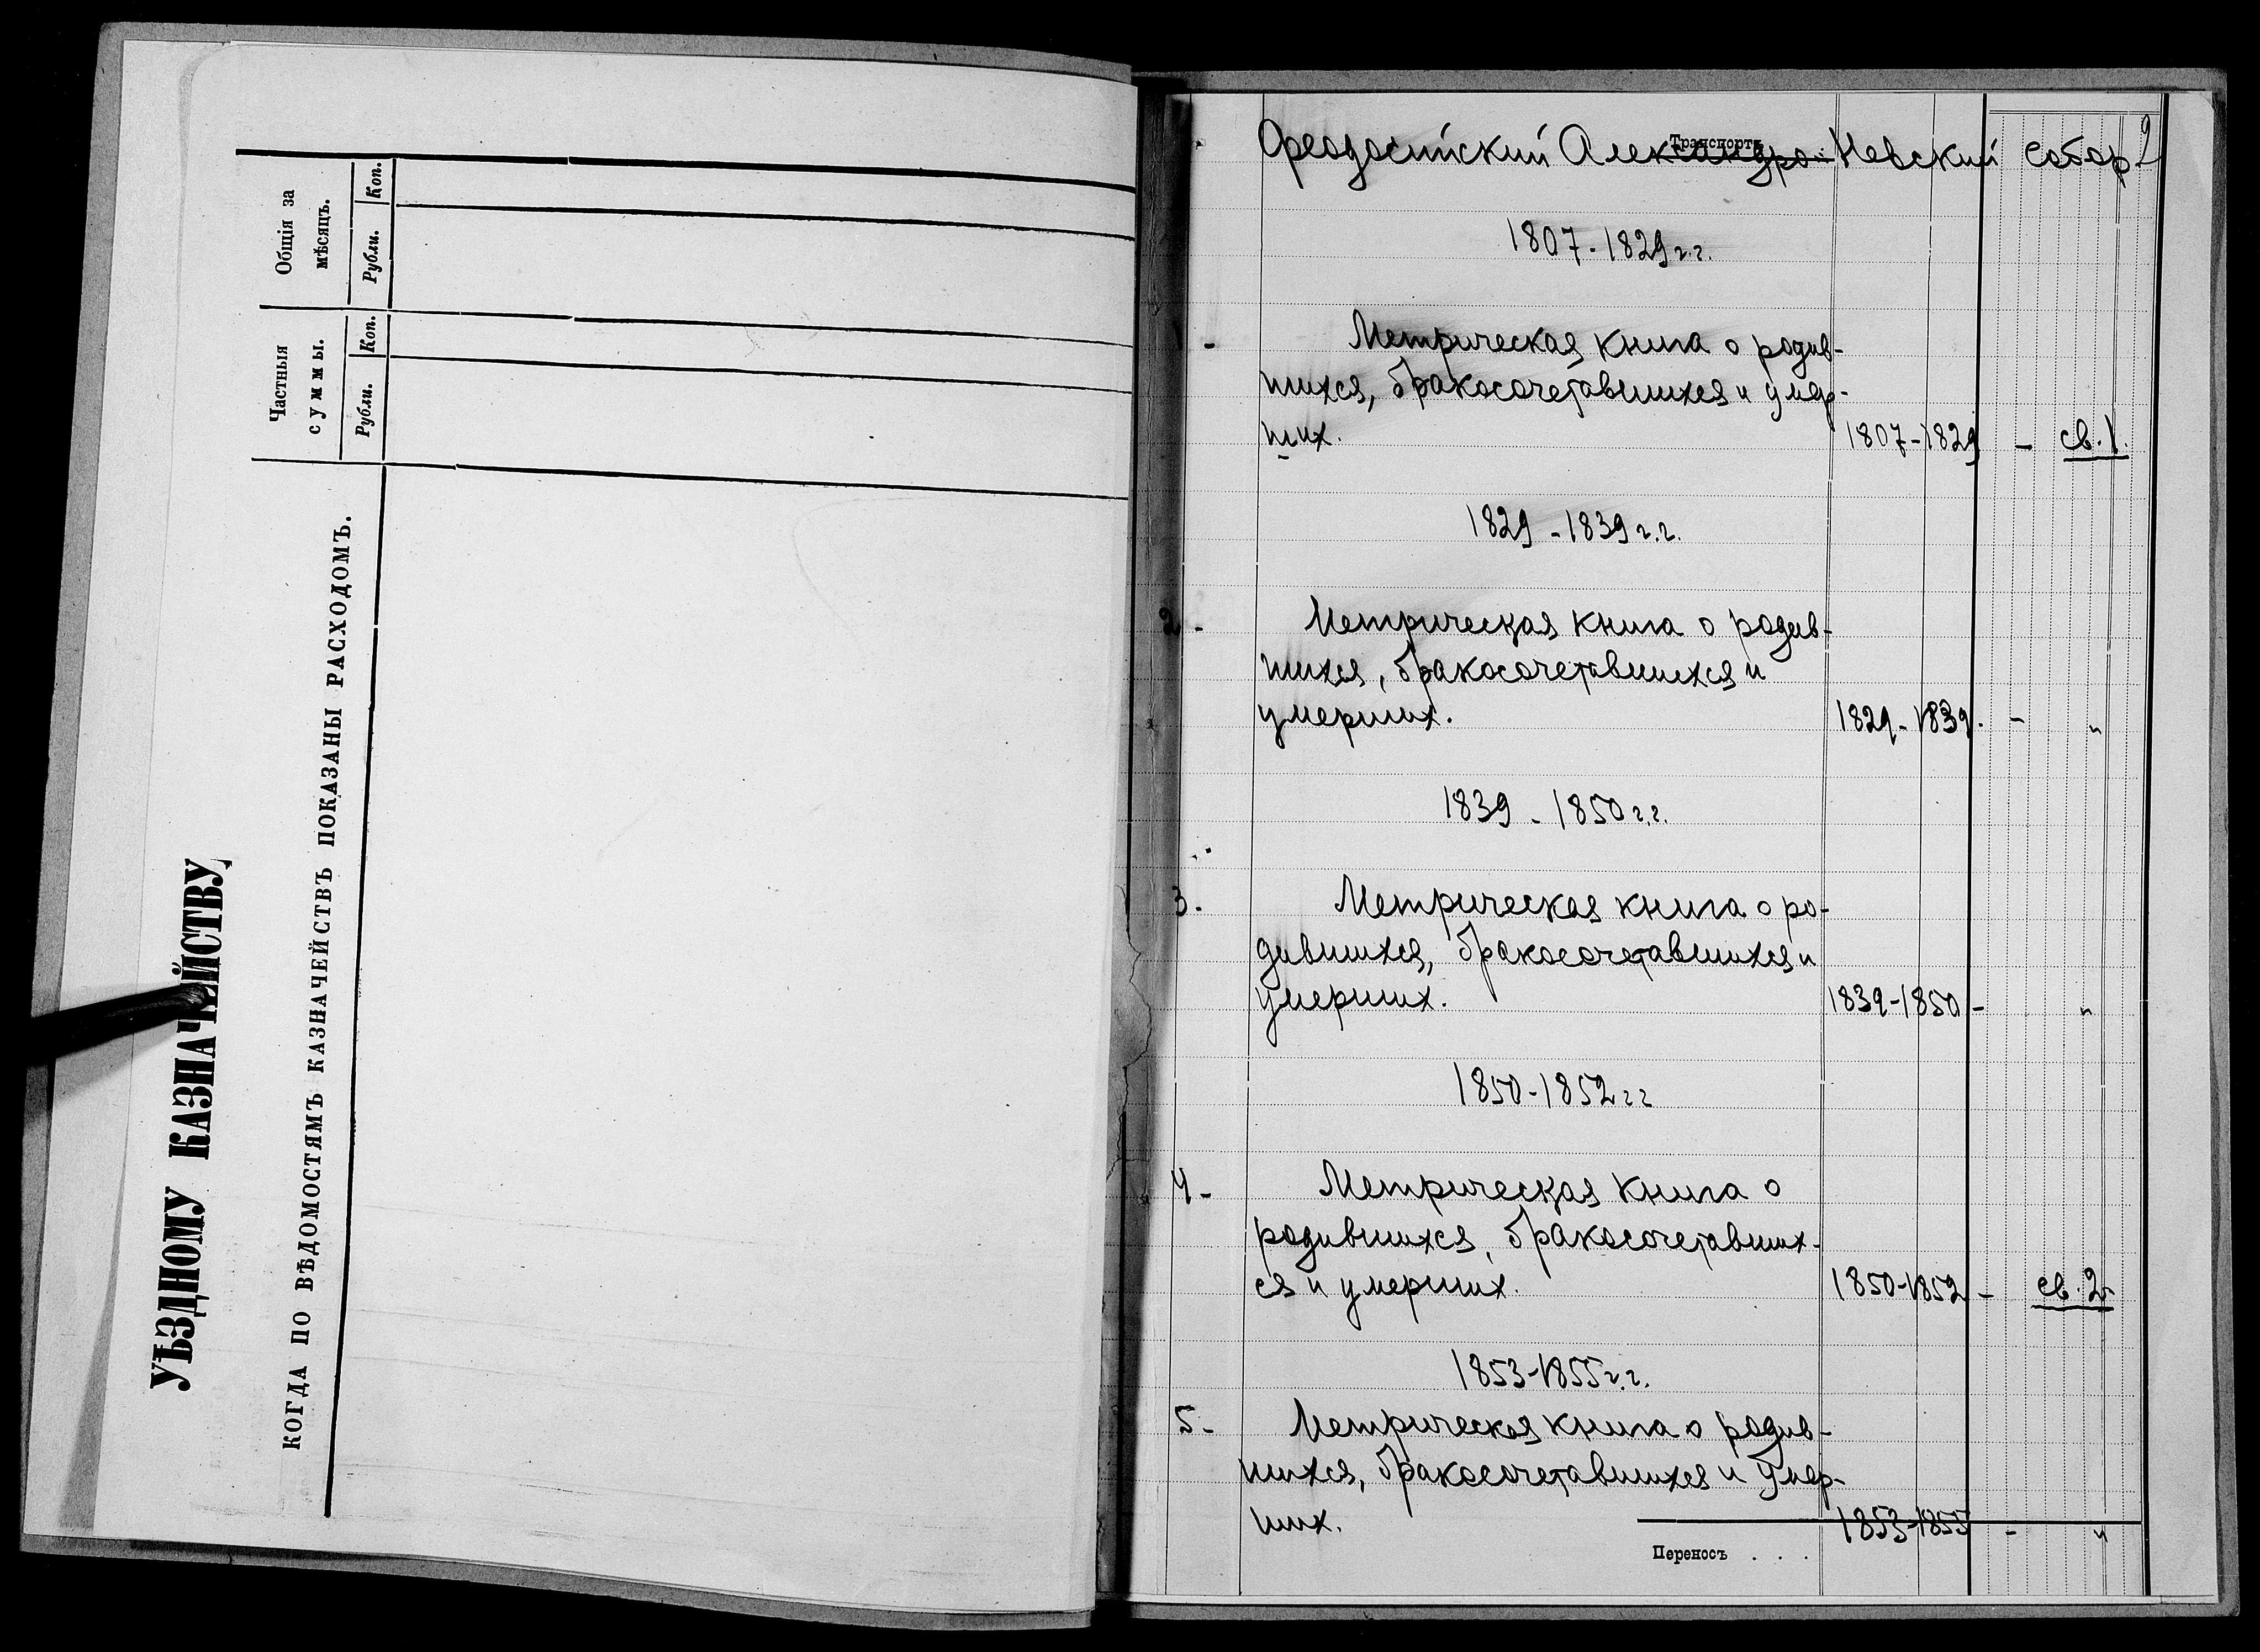 УѢЗДНОМУ КАЗНАЧЕЙСТВУ,
КОГДА ПО ВѢДОМОСТЯМЪ КАЗНАЧЕЙСТВЪ ПОКАЗАНЫ РАСХОДОМЪ.
Частныя
суммы.
Рубли. Коп.
Общія за
мѣсяцъ.
Рубли. Коп.
2
Транспортъ
Феодосийский Александро-Невский собор
1807-1829 г.г.
1 - Метрическая книга о родив-
шихся, бракосочетавшихся и умер-
ших. 1807-1829 - св. 1.
1829-1839 г.г.
2 - Метрическая книга о родив-
шихся, бракосочетавшихся и
умерших. 1829-1839. - "
1839-1850 г.г.
3. Метрическая книга о ро-
дившихся, бракосочетавшихся и
умерших. 1839-1850 - "
1850-1852 г г
4 - Метрическая книга о
родившихся, бракосочетавших-
ся и умерших. 1850-1852 - св. 2.
1853-1855 г.г.
5 - Метрическая книга о родив-
шихся, бракосочетавшихся и умер-
ших. 1853-1855 - "
Переносъ . . .